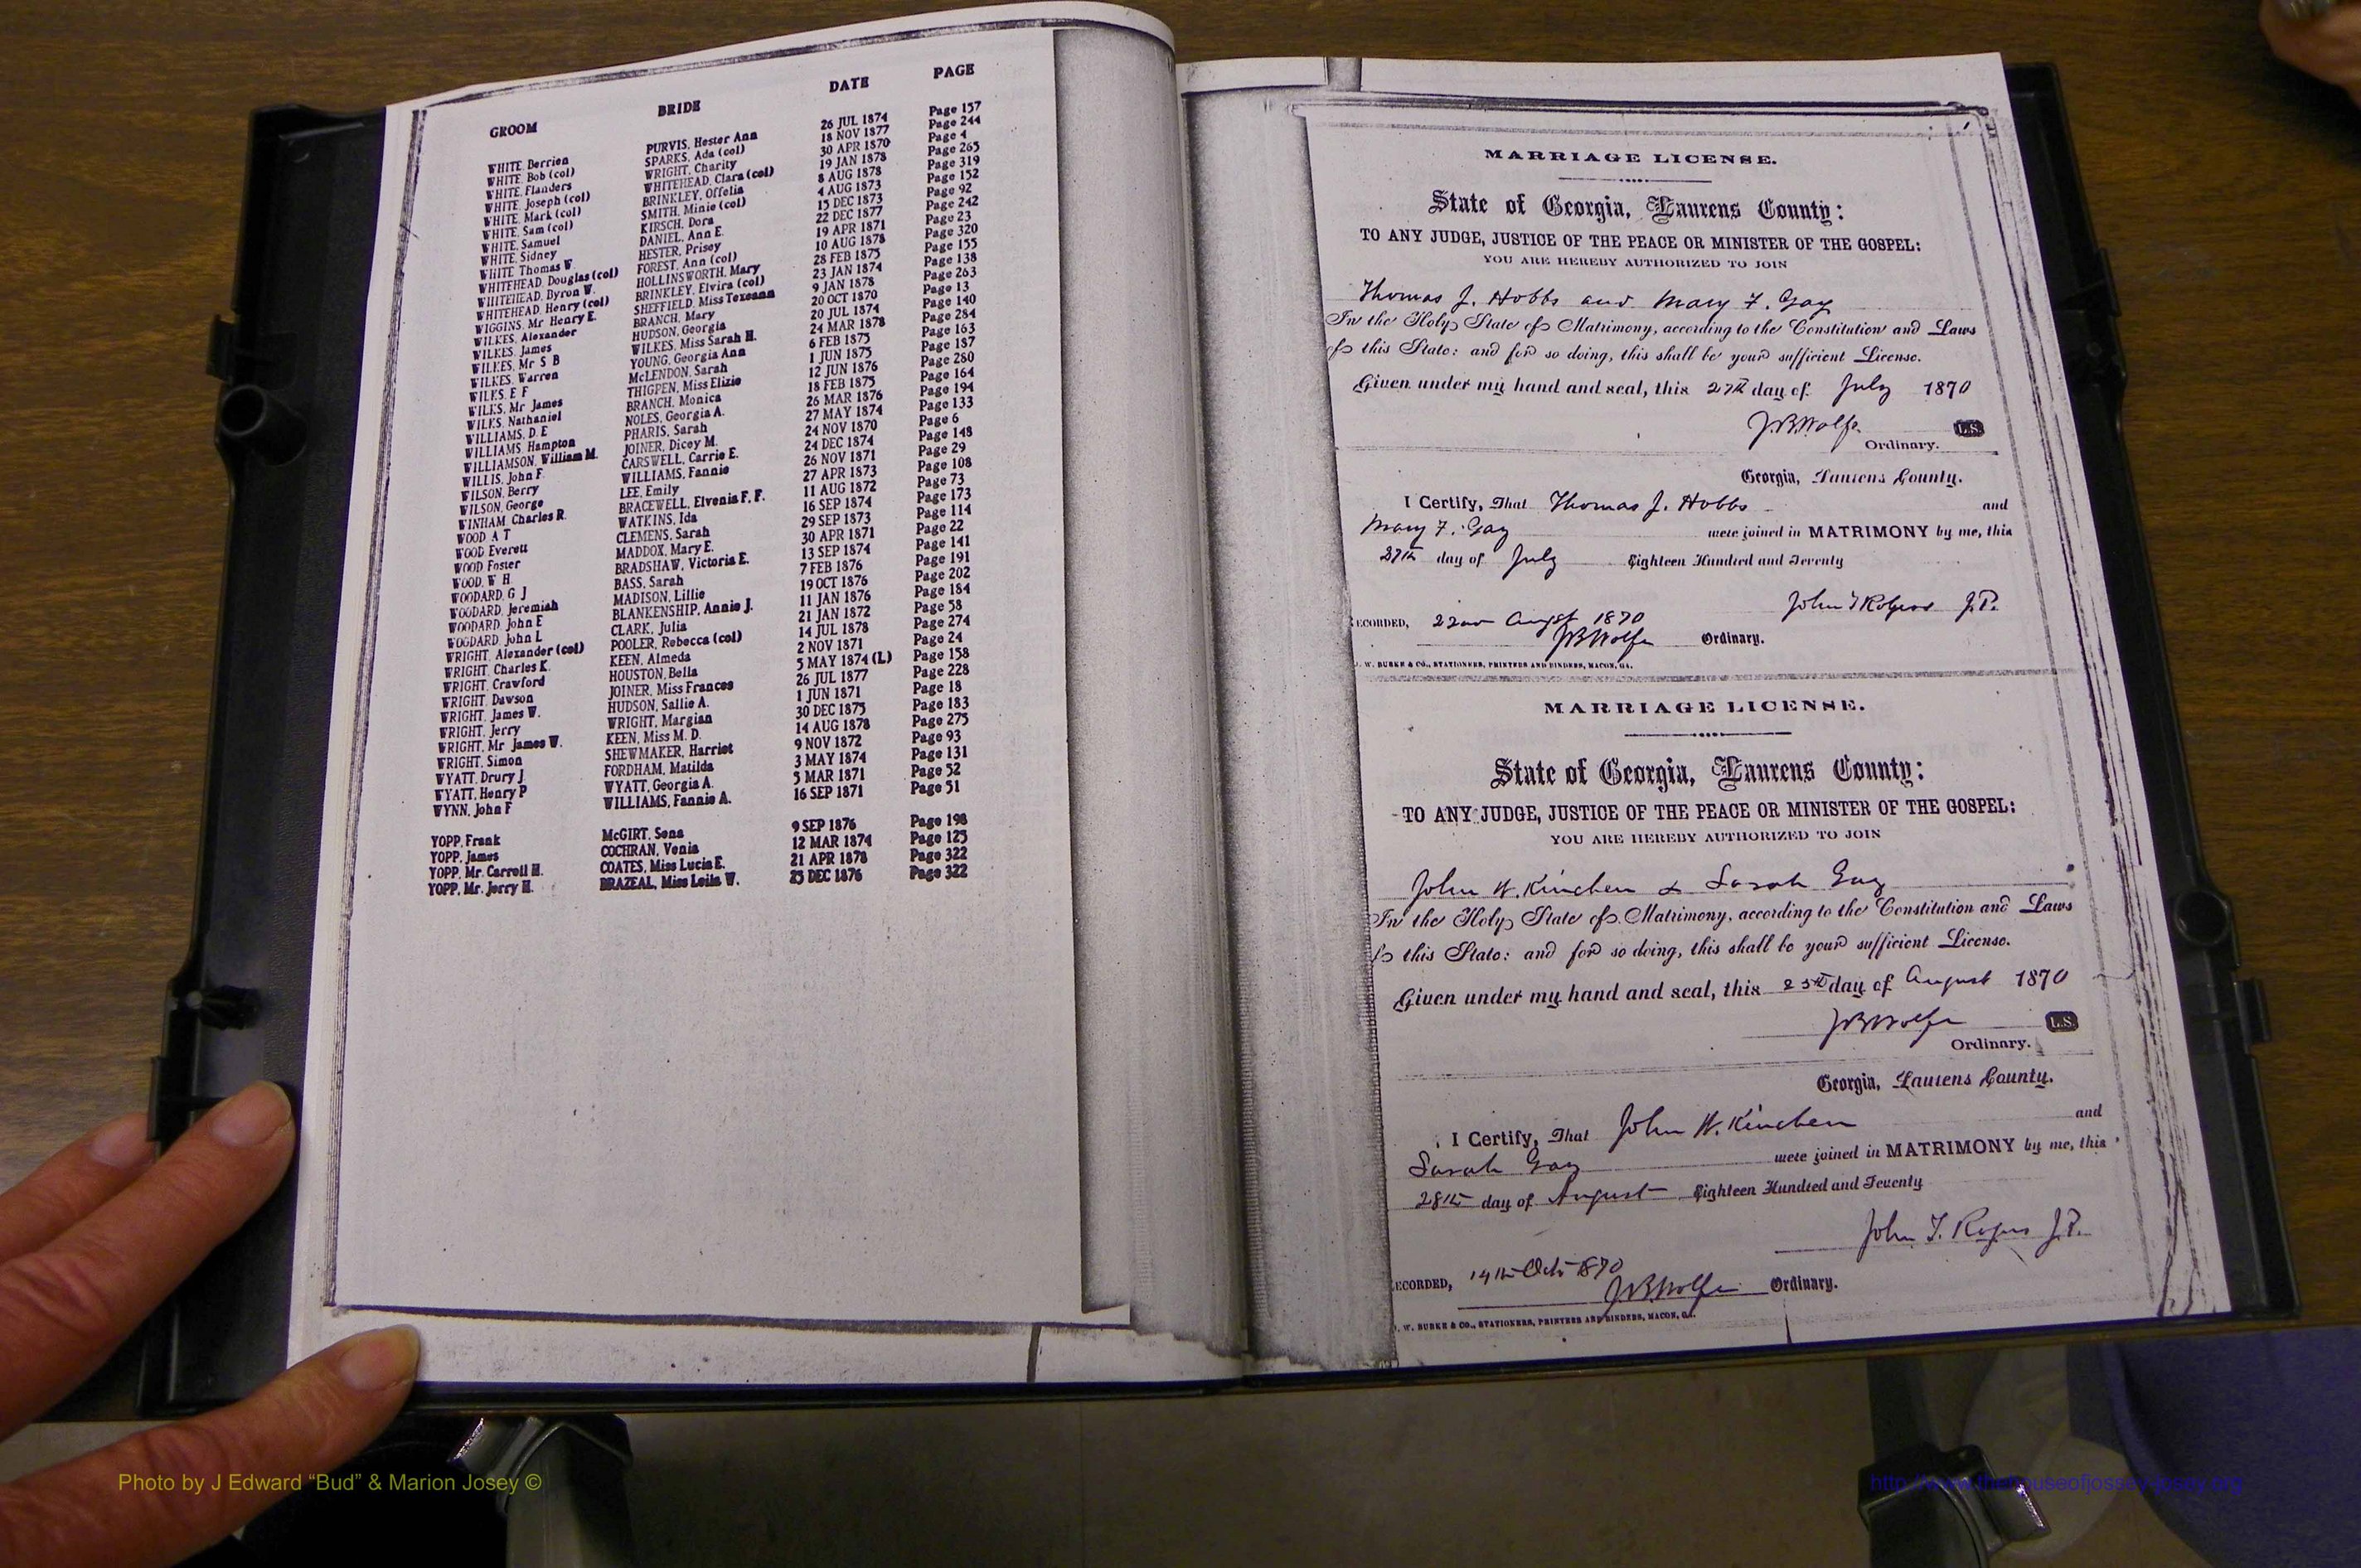 GROOM BRIDE DATE PAGE
WHITE, Berrien PURVIS, Hester Ann 26 JUL 1874 Page 157
WHITE, Bob (col) SPARKS, Ada (col) 18 NOV 1877 Page 244
WHITE, Flanders WRIGHT, Charity 30 APR 1870 Page 4
WHITE, Joseph (col) WHITEHEAD, Clara (col) 19 JAN 1878 Page 265
WHITE, Mark (col) BRINKLEY, Offelia 8 AUG 1878 Page 319
WHITE, Sam (col) SMITH, Minie (col) 4 AUG 1873 Page 152
WHITE, Samuel KIRSCH, Dora 15 DEC 1873 Page 92
WHITE, Sidney DANIEL, Ann E. 22 DEC 1877 Page 242
WHITE Thomas W. HESTER, Prisey 19 APR 1871 Page 23
WHITEHEAD, Douglas (col) FOREST, Ann (col) 10 AUG 1878 Page 320
WHITEHEAD, Byron W. HOLLINSWORTH, Mary 28 FEB 1875 Page 155
WHITEHEAD, Henry (col) BRINKLEY, Elvira (col) 23 JAN 1874 Page 138
WIGGINS, Mr Henry E. SHEFFIELD, Miss Texeann 9 JAN 1878 Page 263
WILKES, Alexander BRANCH, Mary 20 OCT 1870 Page 13
WILKES, James HUDSON, Georgia 20 JUL 1874 Page 140
WILKES, Mr S B WILKES, Miss Sarah H. 24 MAR 1878 Page 284
WILKES, Warren YOUNG, Georgia Ann 6 FEB 1875 Page 163
WILKS, E F McLENDON, Sarah 1 JUN 1875 Page 187
WILKS, Mr James THIGPEN, Miss Elizie 12 JUN 1876 Page 280
WILKS, Nathaniel BRANCH, Monica 18 FEB 1875 Page 164
WILLIAMS, D. E NOLES, Georgia A. 26 MAR 1876 Page 194
WILLIAMS, Hampton PHARIS, Sarah 27 MAY 1874 Page 133
WILLIAMSON, William M. JOINER, Dicey M. 24 NOV 1870 Page 6
WILLIS, John F. CARSWELL, Carrie E. 24 DEC 1874 Page 148
WILSON, Berry WILLIAMS, Fannie 26 NOV 1871 Page 29
WILSON, George LEE, Emily 27 APR 1873 Page 108
WINHAM, Charles R. BRACEWELL, Elvenia F. F. 11 AUG 1872 Page 73
WOOD A T WATKINS, Ida 16 SEP 1874 Page 173
WOOD Everett CLEMENS, Sarah 29 SEP 1873 Page 114
WOOD Foster MADDOX, Mary E. 30 APR 1871 Page 22
WOOD, W H BRADSHAW, Victoria E. 13 SEP 1874 Page 141
WOODARD, G J BASS, Sarah 7 FEB 1876 Page 191
WOODARD, Jeremiah MADISON, Lillie 19 OCT 1876 Page 202
WOODARD, John E BLANKENSHIP, Annie J. 11 JAN 1876 Page 184
WOODARD, John L CLARK, Julia 21 JAN 1872 Page 58
WRIGHT, Alexander (col) POOLER, Rebecca (col) 14 JUL 1878 Page 274
WRIGHT, Charles K. KEEN, Almeda 2 NOV 1871 Page 24
WRIGHT, Crawford HOUSTON, Bella 5 MAY 1874 (L) Page 158
WRIGHT, Dawson JOINER, Miss Frances 26 JUL 1877 Page 228
WRIGHT, James W. HUDSON, Sallie A. 1 JUN 1871 Page 18
WRIGHT, Jerry WRIGHT, Margian 30 DEC 1875 Page 183
WRIGHT, Mr James W. KEEN, Miss M. D. 14 AUG 1878 Page 275
WRIGHT, Simon SHEWMAKER, Harriet 9 NOV 1872 Page 93
WYATT, Drury J FORDHAM, Matilda 3 MAY 1874 Page 131
WYATT, Henry P WYATT, Georgia A. 5 MAR 1871 Page 52
WYNN, John F WILLIAMS, Fannie A. 16 SEP 1871 Page 51
YOPP, Frank McGIRT, Sena 9 SEP 1876 Page 198
YOPP, James COCHRAN, Venia 12 MAR 1874 Page 125
YOPP, Mr. Carroll H. COATES, Miss Lucia E. 21 APR 1878 Page 322
YOPP, Mr. Jerry H. BRAZEAL, Miss Leila W. 23 DEC 1876 Page 322
MARRIAGE LICENSE.
State of Georgia, Laurens County:
TO ANY JUDGE, JUSTICE OF THE PEACE OR MINISTER OF THE GOSPEL:
YOU ARE HEREBY AUTHORIZED TO JOIN
Thomas J. Hobbs and Mary F. Gay
In the Holy State of Matrimony, according to the Constitution and Laws
of this State: and for so doing, this shall be your sufficient License.
Given under my hand and seal, this 27th day of July 1870
JBWolfe L.S.
Ordinary.
Georgia, Laurens County.
I Certify, That Thomas J. Hobbs and
Mary F. Gay were joined in MATRIMONY by me, this
27th day of July Eighteen Hundred and Seventy
John T Rogers J.P.
ECORDED, 22nd August 1870
JBWolfe Ordinary.
J. W. BURKE & CO., STATIONERS, PRINTERS AND BINDERS, MACON, GA.
MARRIAGE LICENSE.
State of Georgia, Laurens County:
TO ANY JUDGE, JUSTICE OF THE PEACE OR MINISTER OF THE GOSPEL:
YOU ARE HEREBY AUTHORIZED TO JOIN
John W. Kinchen & Sarah Gay
In the Holy State of Matrimony, according to the Constitution and Laws
of this State: and for so doing, this shall be your sufficient License.
Given under my hand and seal, this 25th day of August 1870
JBWolfe L.S.
Ordinary.
Georgia, Laurens County.
I Certify, That John W. Kinchen and
Sarah Gay were joined in MATRIMONY by me, this
28th day of August Eighteen Hundred and Seventy
John T. Rogers J.P.
ECORDED, 14th Oct 1870
JBWolfe Ordinary.
W. BURKE & CO., STATIONERS, PRINTERS AND BINDERS, MACON, GA.
Photo by J Edward “Bud” & Marion Josey ©
http://www.thehouseofjossey-josey.org